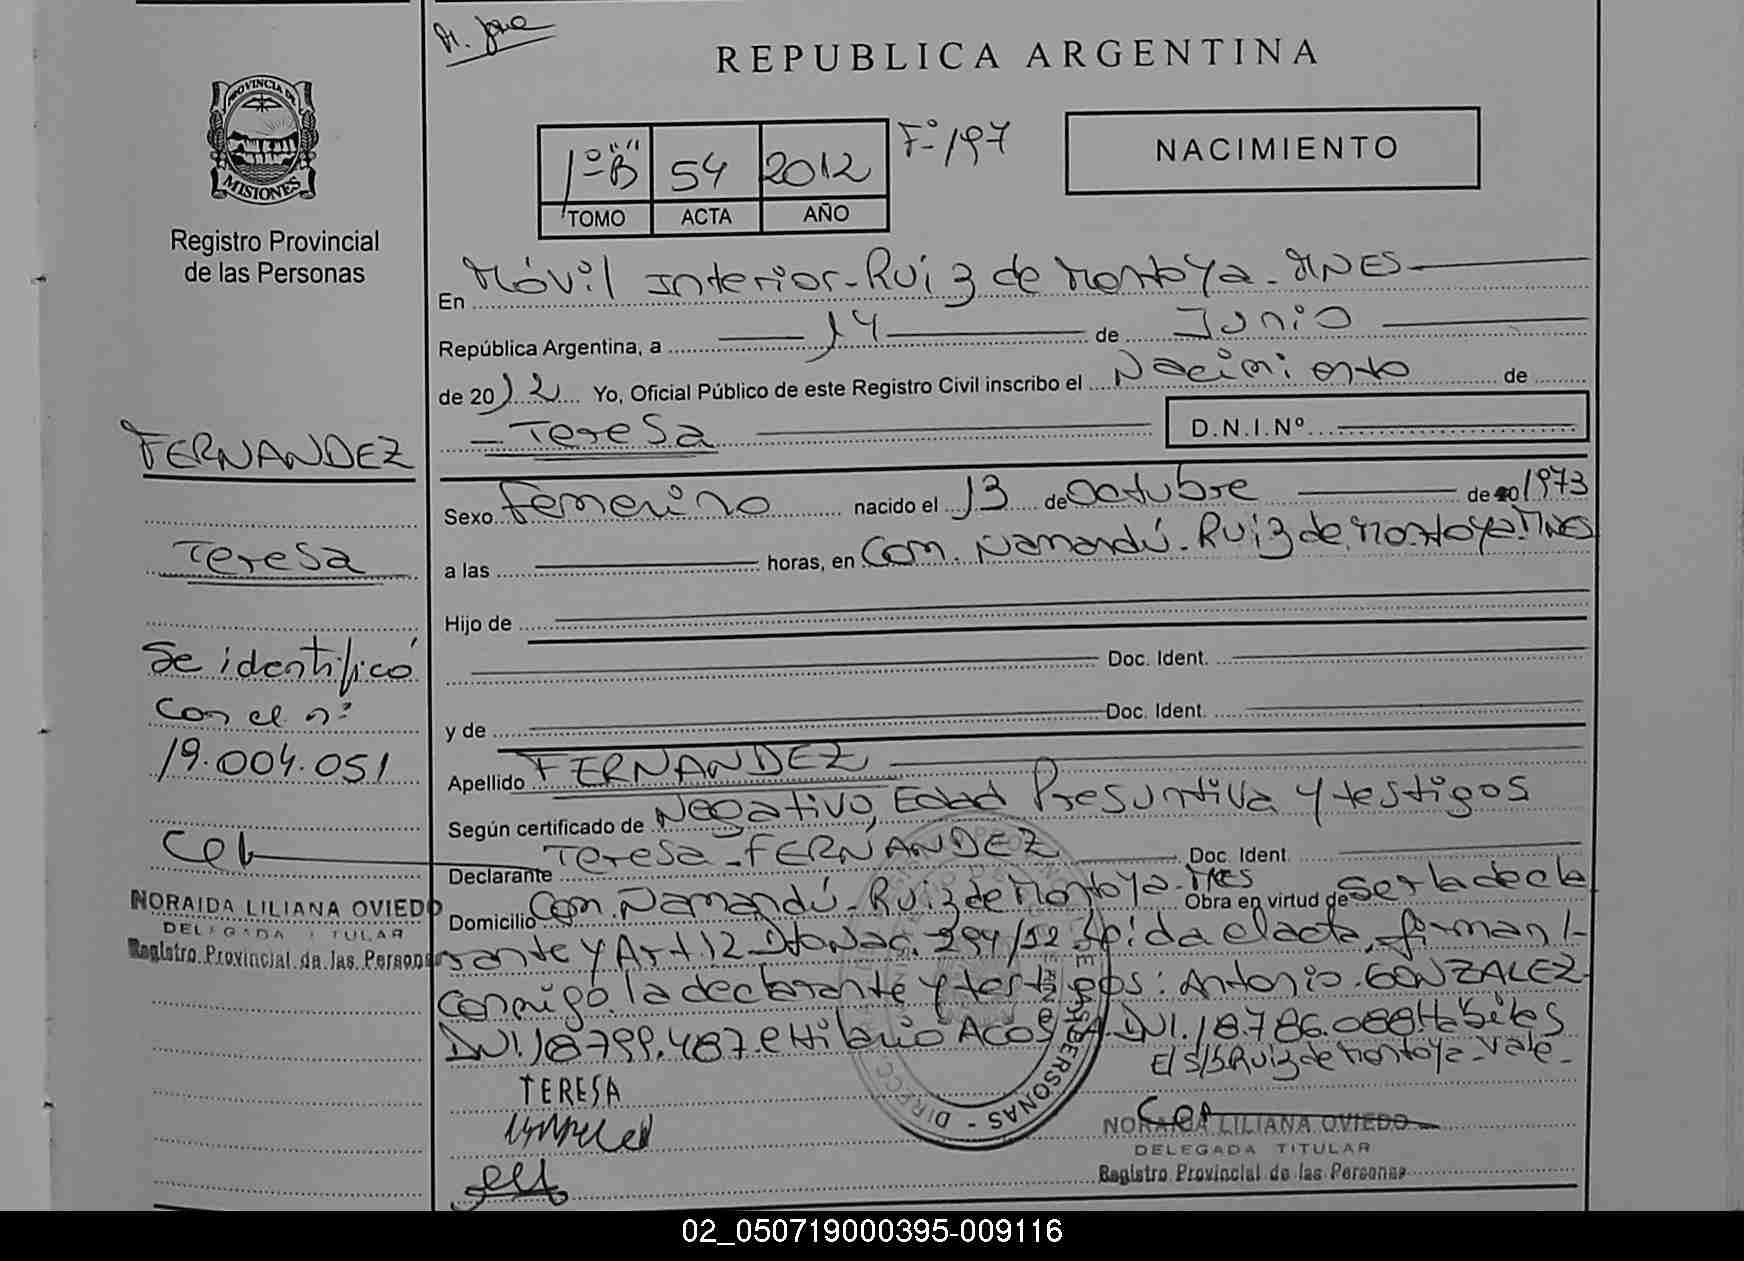 REPUBLICA ARGENTINA
PROVINCIA DE
MISIONES
Registro Provincial
de las Personas
1º "B" 54 2012 Fº 197
TOMO ACTA AÑO
NACIMIENTO
En Móvil Interior - Ruiz de Montoya - MNES
República Argentina, a 14 de Junio
de 2012 Yo, Oficial Público de este Registro Civil inscribo el Nacimiento de
- Teresa D.N.I.Nº
FERNANDEZ
Teresa
Se identificó
con el nº
19.004.051
NORAIDA LILIANA OVIEDO
DELEGADA TITULAR
Registro Provincial de las Personas
Sexo Femenino nacido el 13 de Octubre de 20 1973
a las horas, en Com. Ñamandú. Ruiz de Montoya. MNES
Hijo de
Doc. Ident.
y de Doc. Ident.
Apellido FERNANDEZ
Según certificado de Negativo, Edad Presuntiva y testigos
Declarante Teresa - FERNANDEZ Doc. Ident.
Domicilio Com. Ñamandú - Ruiz de Montoya - MNES Obra en virtud de Ser la decla
rante y Art. 12 Dto Nac. 294/12 Leída el acta, firman
conmigo la declarante y testigos: Antonio GONZALEZ
DNI. 18.799.487. e Hilario ACOSTA. DNI. 18.786.088 Hábiles
E/S/S Ruiz de Montoya - Vale -
TERESA
NORAIDA LILIANA OVIEDO
DELEGADA TITULAR
Registro Provincial de las Personas
02_050719000395-009116